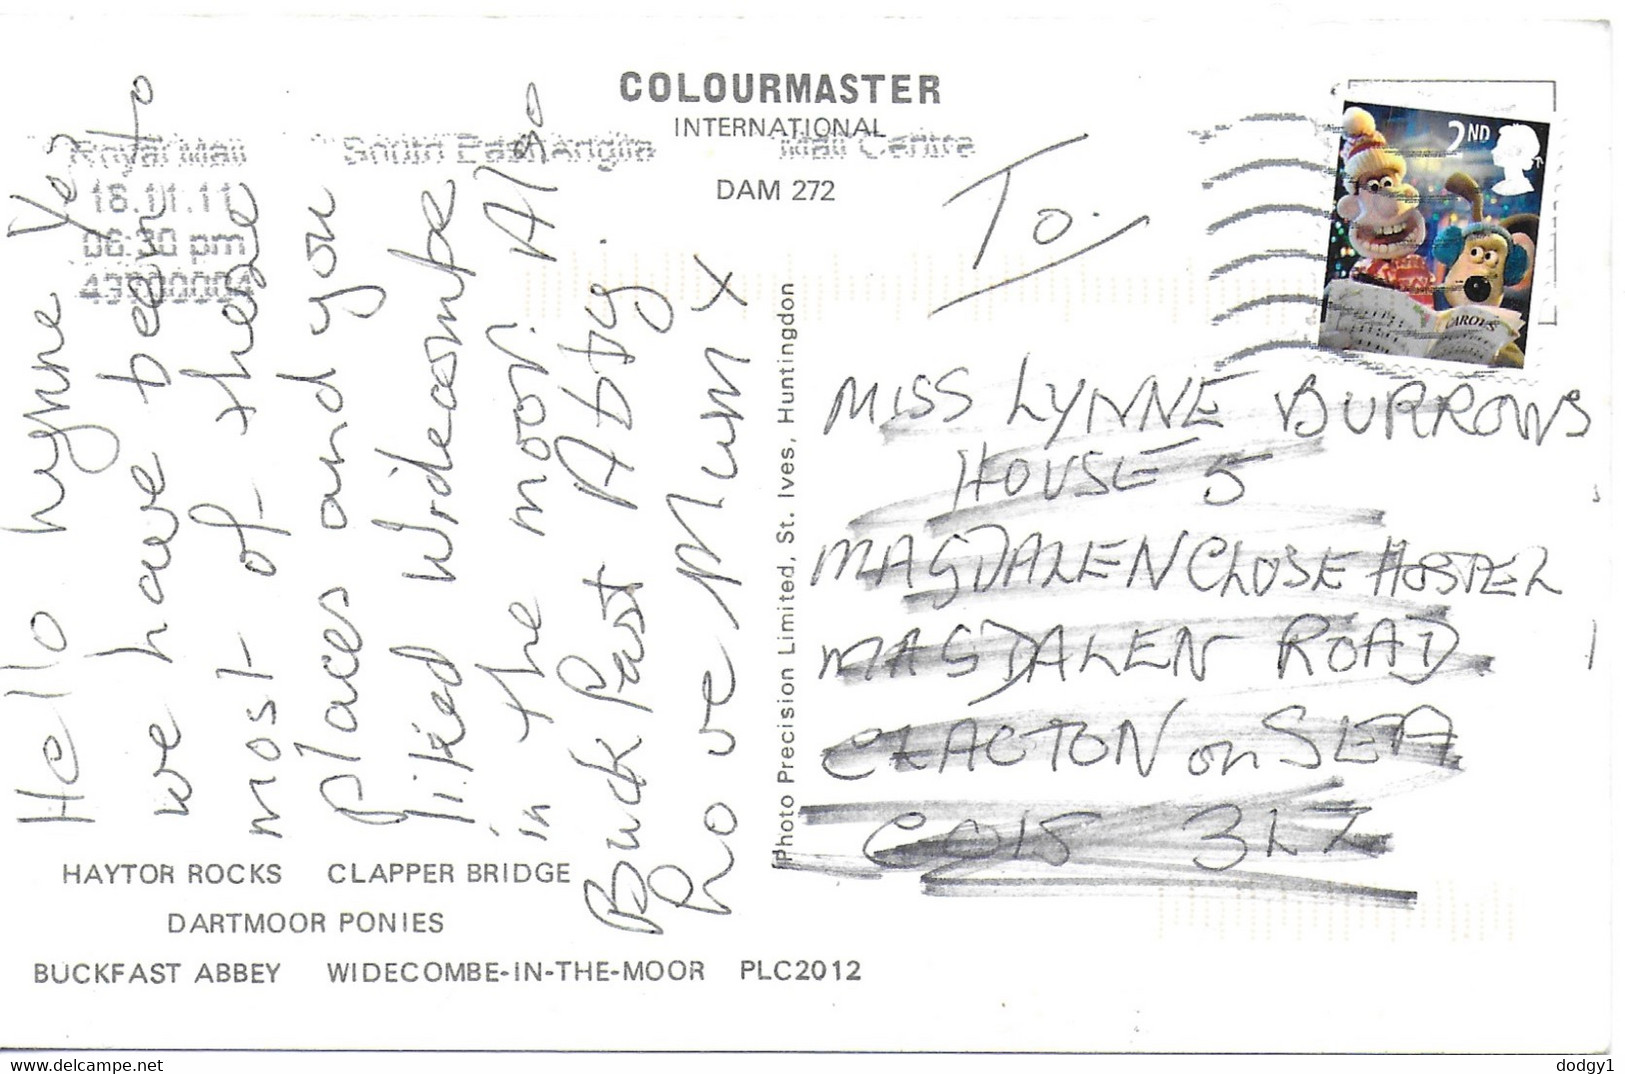 COLOURMASTER
INTERNATIONAL
DAM 272
Royal Mail South East Anglia Mail Centre
18.01.11
06:30 pm
2ND
CAROLS
Hello Lynne Yes
we have been to
most of these
places and you
liked Widecombe
in the moor. Also
Buck Fast Abby.
Love Mum X
Photo Precision Limited, St. Ives, Huntingdon
To.
MISS LYNNE BURROWS
HOUSE 5
MAGDALEN CLOSE HOSTEL
MAGDALEN ROAD
CLACTON on SEA
CO15 3LZ
HAYTOR ROCKS CLAPPER BRIDGE
DARTMOOR PONIES
BUCKFAST ABBEY WIDECOMBE-IN-THE-MOOR PLC2012
https://www.delcampe.net
dodgy1